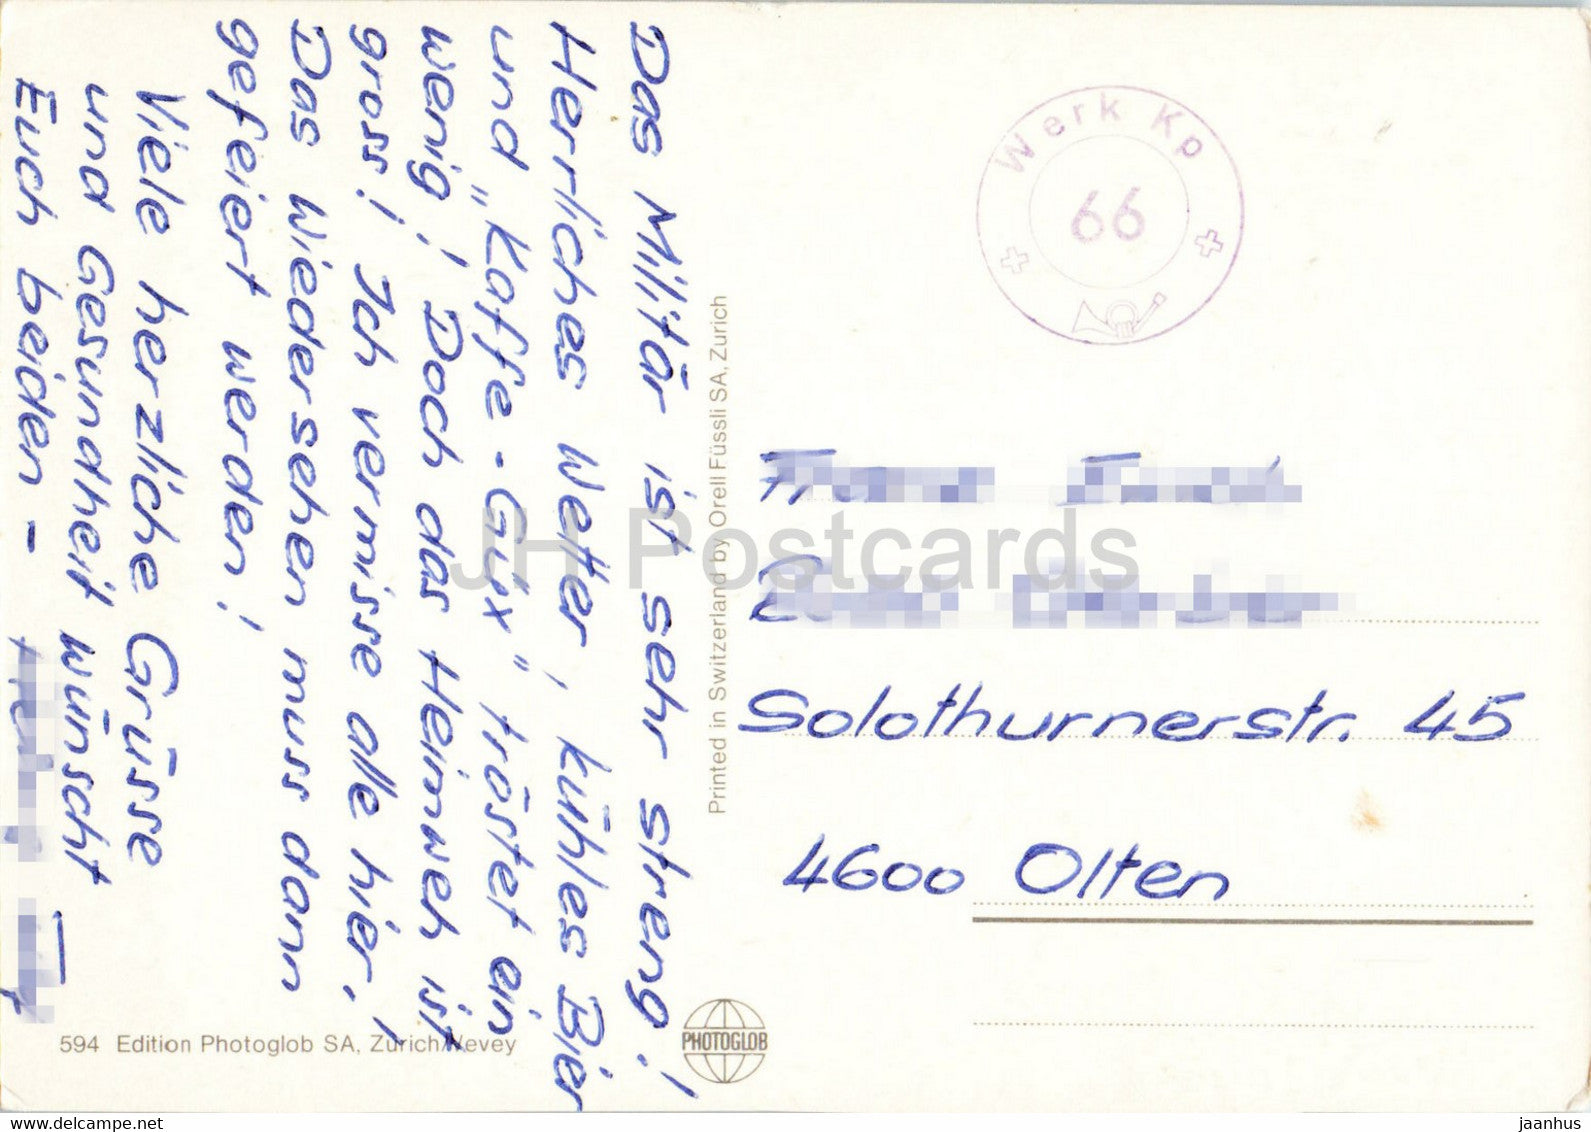 Das Militär ist sehr streng!
Herrliches Wetter, kühles Bier
und „Kaffe-Güx" tröstet ein
wenig! Doch das Heimweh ist
gross! Ich vermisse alle hier,
Das Wiedersehen muss dann
gefeiert werden!
Viele herzliche Grüsse
und Gesundheit wünscht
Euch beiden -
Werk Kp
66
Solothurnerstr. 45
4600 Olten
Printed in Switzerland by Orell Füssli SA, Zurich
594 Edition Photoglob SA, Zurich/Vevey
PHOTOGLOB
JH Postcards
www.delcampe.net
jaanhus